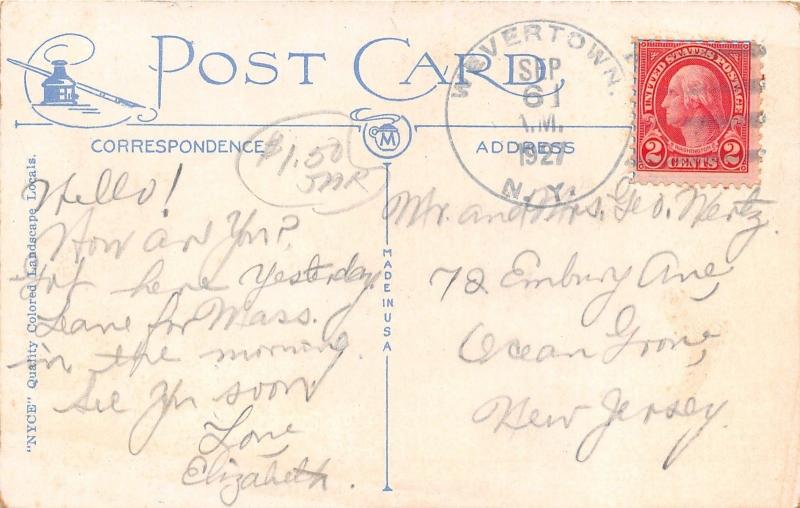 POST CARD
WAVERTOWN.
SEP
6
A.M.
1927
N.Y.
UNITED STATES POSTAGE
WASHINGTON
2 CENTS 2
CORRESPONDENCE
$1.50
M
ADDRESS
Hello!
How are You?
Got here Yesterday.
Leave for Mass.
in the morning.
See you soon
Love
Elizabeth.
Mr. and Mrs. Geo. Wertz.
72 Embury Ave,
Ocean Grove,
New Jersey.
MADE IN USA
"NYCE" Quality Colored Landscape Locals.